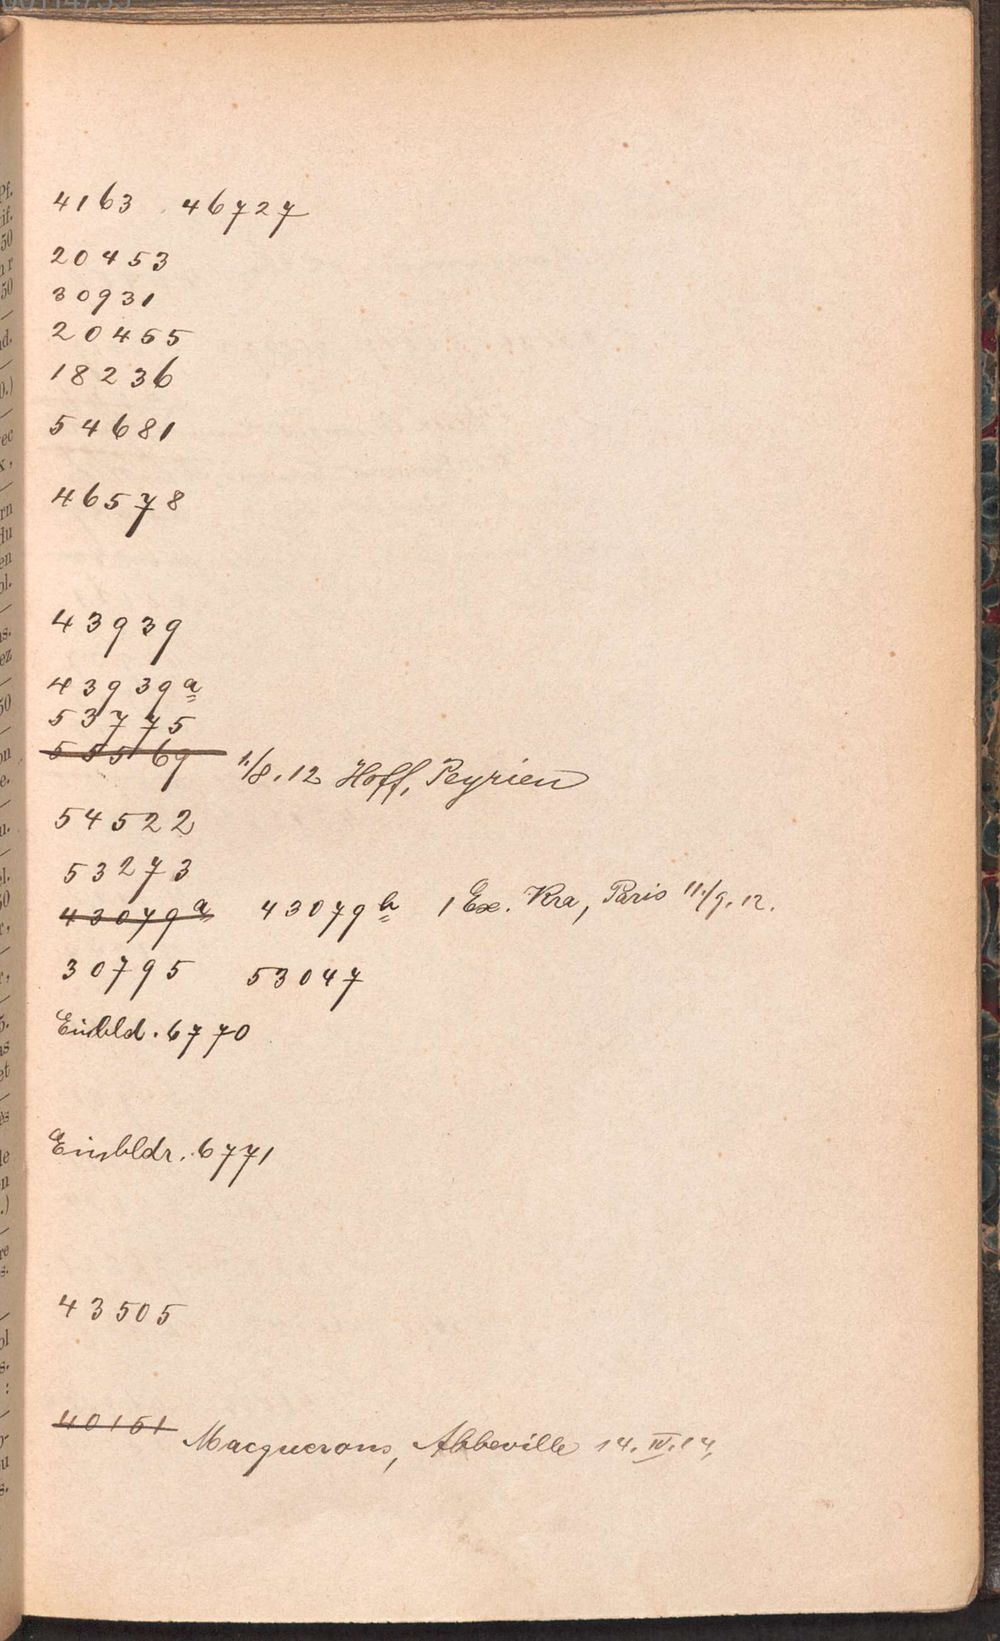 4163 46727
20453
30931
20455
18236
54681
46578
43939
43939a
53775
55569 1./8.12 Hoff, Peyrien
54522
53273
43079a 43079b 1 Ex. Kra, Paris 11./9.12.
30795 53047
Einbld. 6770
Einbldr. 6771
43505
40151 Macquerons, Abbeville 14.IV.14.